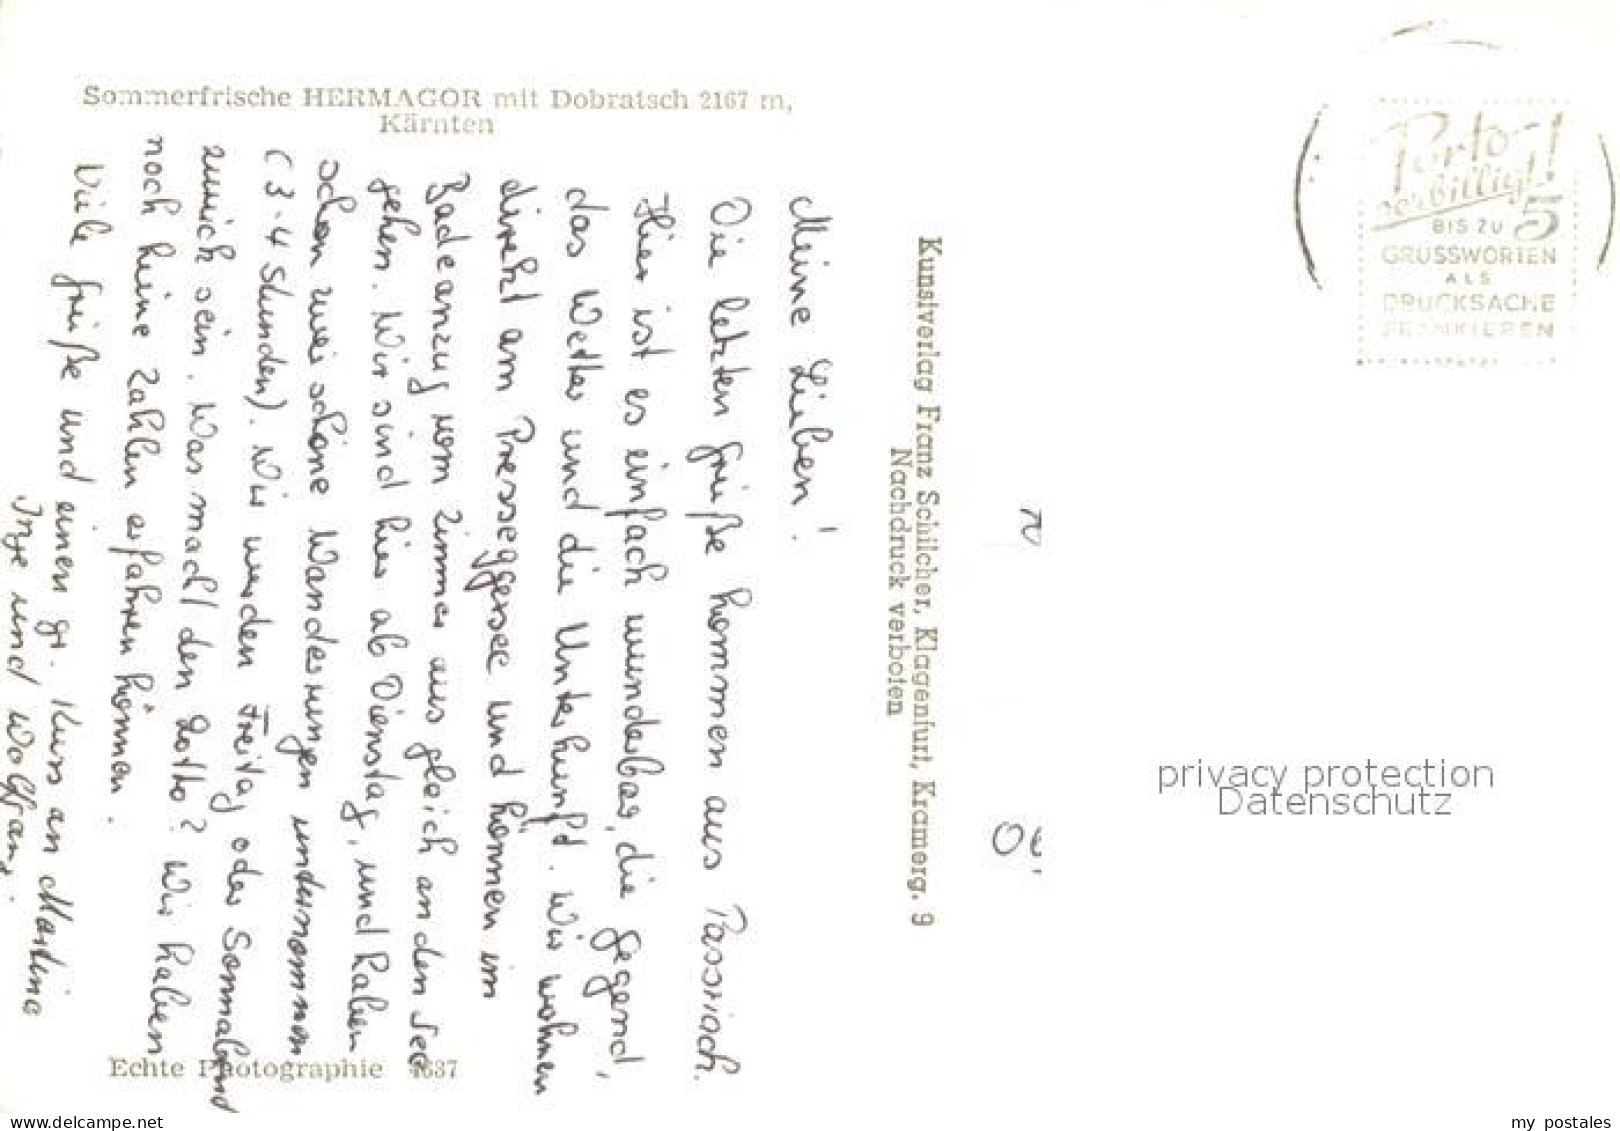 Sommerfrische HERMAGOR mit Dobratsch 2167 m,
Kärnten
Meine Lieben!
Die letzten Grüße kommen aus Passriach.
Hier ist es einfach wunderbar, die Gegend,
das Wetter und die Unterkunft. Wir wohnen
direkt am Presseggersee und können im
Badeanzug vom Zimmer aus gleich an den See
gehen. Wir sind hier ab Dienstag, und haben
schon zwei schöne Wanderungen unternommen
(3-4 Stunden). Wir werden Freitag oder Sonnabend
zurück sein. Was macht den Lotto? Wir haben
noch keine Zahlen erfahren können.
Viele Grüße und einen gr. Kuss an Martina
Inge und Wolfgang.
Echte Photographie 4637
Kunstverlag Franz Schilcher, Klagenfurt, Kramerg. 9
Nachdruck verboten
Porto-
verbilligt!
BIS ZU 5
GRUSSWORTEN
ALS
DRUCKSACHE
FRANKIEREN
privacy protection
Datenschutz
www.delcampe.net
my postales